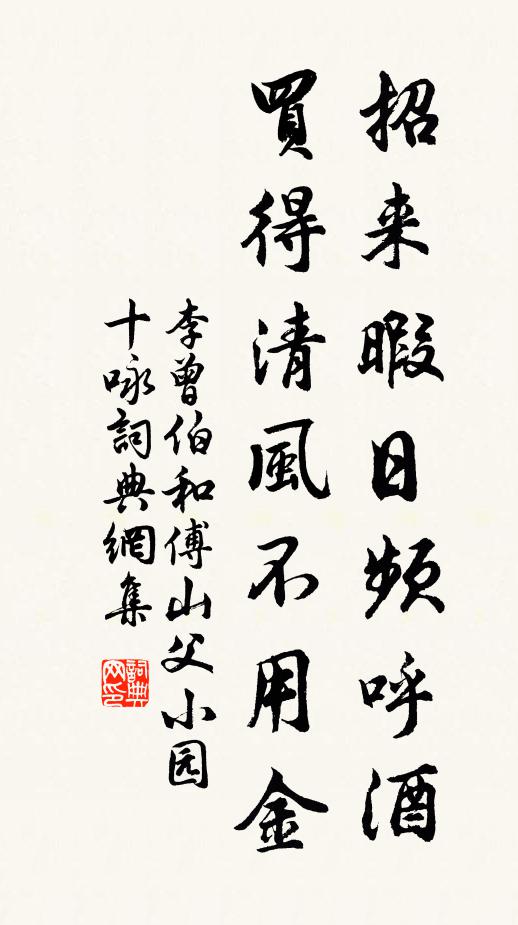 招来暇日頻呼酒
買得清風不用金
李曾伯和傅山父小园
十咏詞典網集
詞典网印